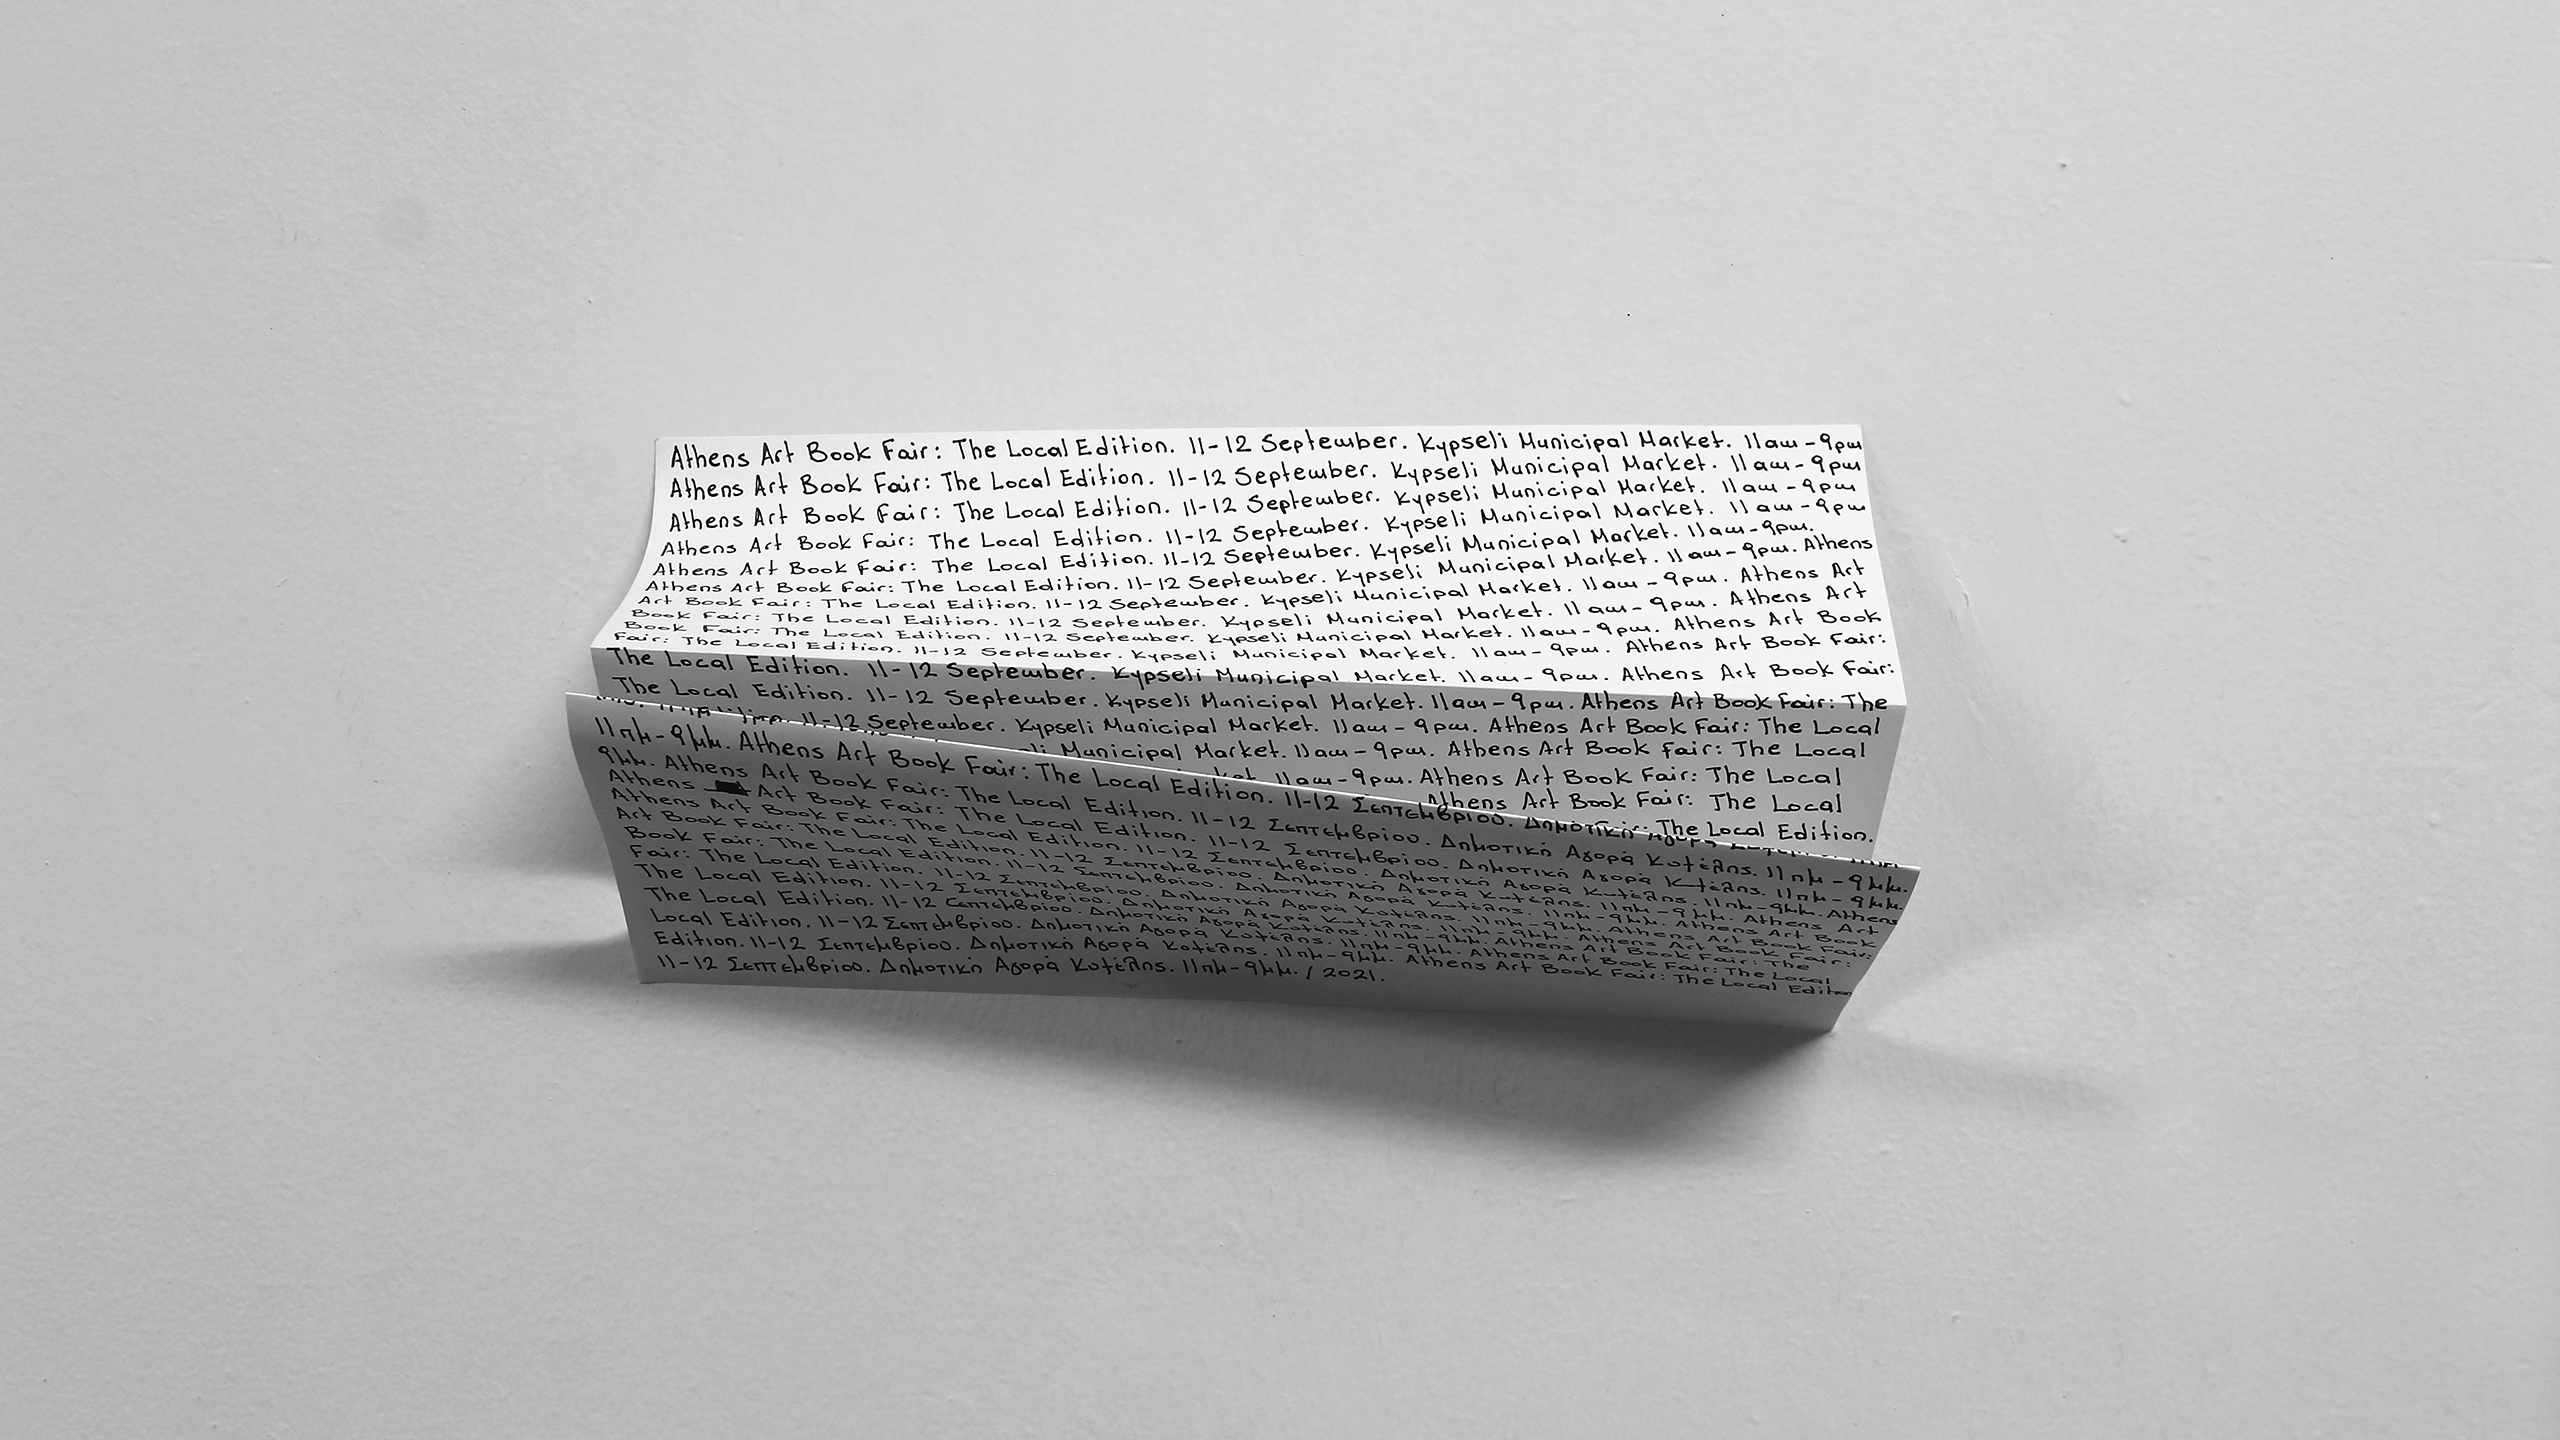 Athens Art Book Fair: The Local Edition. 11-12 September. Kypseli Municipal Market. 11am-9pm
Athens Art Book Fair: The Local Edition. 11-12 September. Kypseli Municipal Market. 11am-9pm
Athens Art Book Fair: The Local Edition. 11-12 September. Kypseli Municipal Market. 11am-9pm
Athens Art Book Fair: The Local Edition. 11-12 September. Kypseli Municipal Market. 11am-9pm
Athens Art Book Fair: The Local Edition. 11-12 September. Kypseli Municipal Market. 11am-9pm.
Athens Art Book Fair: The Local Edition. 11-12 September. Kypseli Municipal Market. 11am-9pm. Athens
Art Book Fair: The Local Edition. 11-12 September. Kypseli Municipal Market. 11am-9pm. Athens Art
Book Fair: The Local Edition. 11-12 September. Kypseli Municipal Market. 11am-9pm. Athens Art
Book Fair: The Local Edition. 11-12 September. Kypseli Municipal Market. 11am-9pm. Athens Art Book
Fair: The Local Edition. 11-12 September. Kypseli Municipal Market. 11am-9pm. Athens Art Book Fair:
The Local Edition. 11-12 September. Kypseli Municipal Market. 11am-9pm. Athens Art Book Fair:
The Local Edition. 11-12 September. Kypseli Municipal Market. 11am-9pm. Athens Art Book Fair: The
11-12 September. Kypseli Municipal Market. 11am-9pm. Athens Art Book Fair: The Local
Municipal Market. 11am-9pm. Athens Art Book Fair: The Local
11am-9pm. Athens Art Book Fair: The Local
Athens Art Book Fair: The Local
The Local Edition.
11πμ-9μμ. Athens Art Book Fair: The Local Edition. 11-12 Σεπτεμβρίου. Δημοτική
9μμ. Athens Art Book Fair: The Local Edition. 11-12 Σεπτεμβρίου. Δημοτική Αγορά Κυψέλης. 11πμ-9μμ.
Athens Art Book Fair: The Local Edition. 11-12 Σεπτεμβρίου. Δημοτική Αγορά Κυψέλης. 11πμ-9μμ.
Athens Art Book Fair: The Local Edition. 11-12 Σεπτεμβρίου. Δημοτική Αγορά Κυψέλης. 11πμ-9μμ. Athens
Art Book Fair: The Local Edition. 11-12 Σεπτεμβρίου. Δημοτική Αγορά Κυψέλης. 11πμ-9μμ. Athens Art
Book Fair: The Local Edition. 11-12 Σεπτεμβρίου. Δημοτική Αγορά Κυψέλης. 11πμ-9μμ. Athens Art Book
Fair: The Local Edition. 11-12 Σεπτεμβρίου. Δημοτική Αγορά Κυψέλης. 11πμ-9μμ. Athens Art Book Fair:
The Local Edition. 11-12 Σεπτεμβρίου. Δημοτική Αγορά Κυψέλης. 11πμ-9μμ. Athens Art Book Fair:
The Local Edition. 11-12 Σεπτεμβρίου. Δημοτική Αγορά Κυψέλης. 11πμ-9μμ. Athens Art Book Fair: The
Local Edition. 11-12 Σεπτεμβρίου. Δημοτική Αγορά Κυψέλης. 11πμ-9μμ. Athens Art Book Fair: The Local
Edition. 11-12 Σεπτεμβρίου. Δημοτική Αγορά Κυψέλης. 11πμ-9μμ. Athens Art Book Fair: The Local Edition
11-12 Σεπτεμβρίου. Δημοτική Αγορά Κυψέλης. 11πμ-9μμ. / 2021.